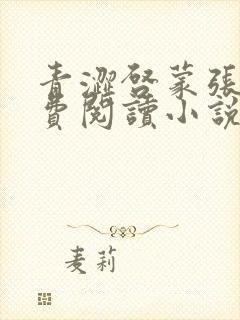 青澀啓蒙張
費閱讀小說
麦莉